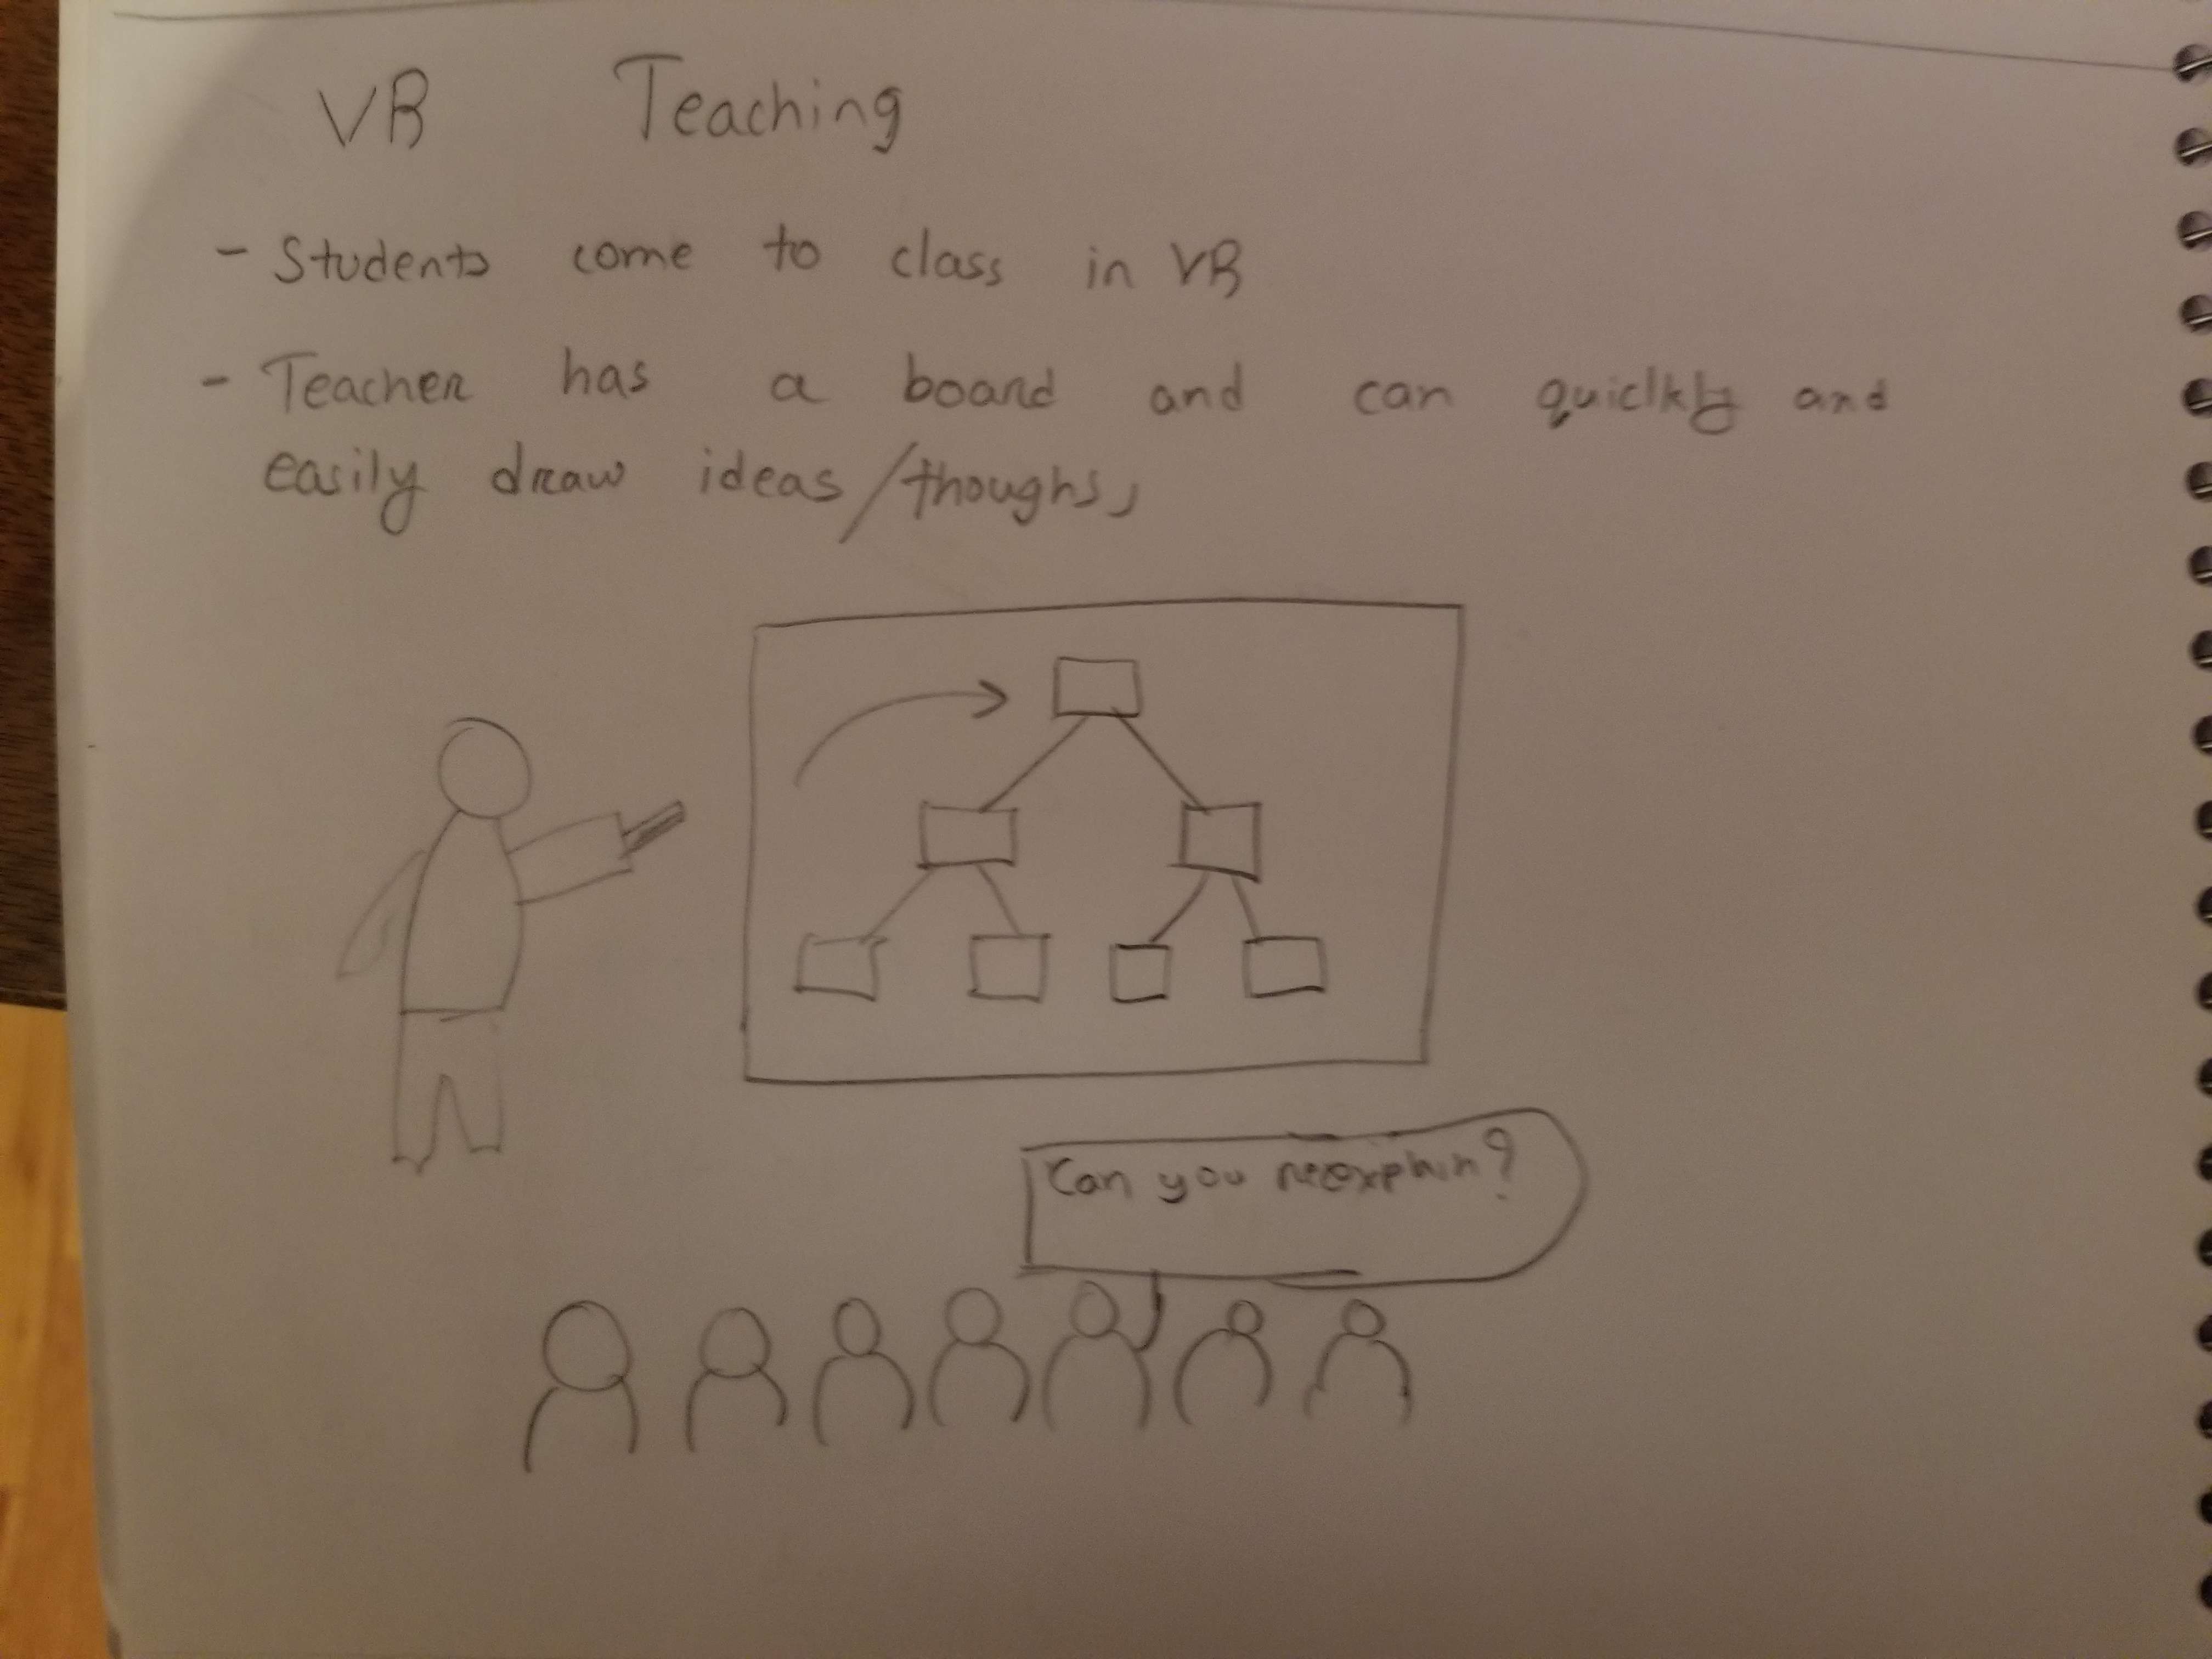 VR Teaching
- Students come to class in VR
- Teacher has a board and can quicklkly and
easily draw ideas/thoughs,
Can you reexplain?